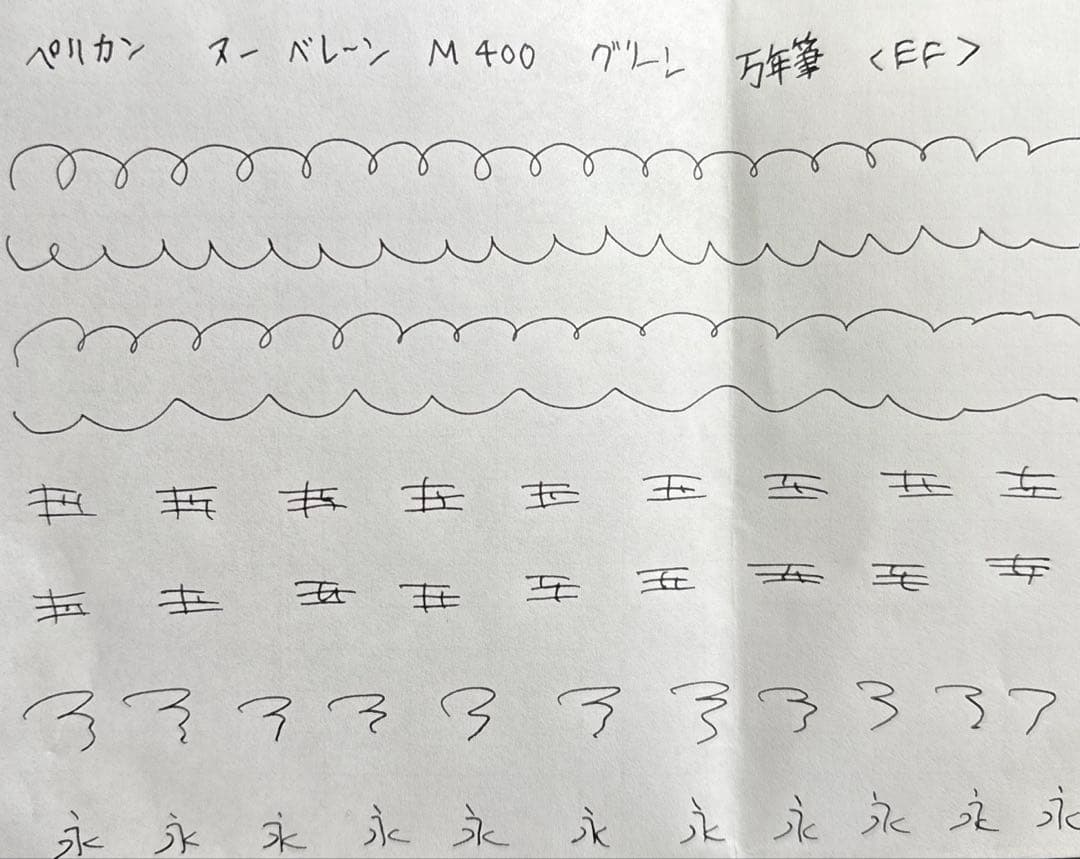 ペリカン ヌーベレーン M400 グリーン 万年筆 <EF>
永 永 永 永 永 永 永 永 永 永 永